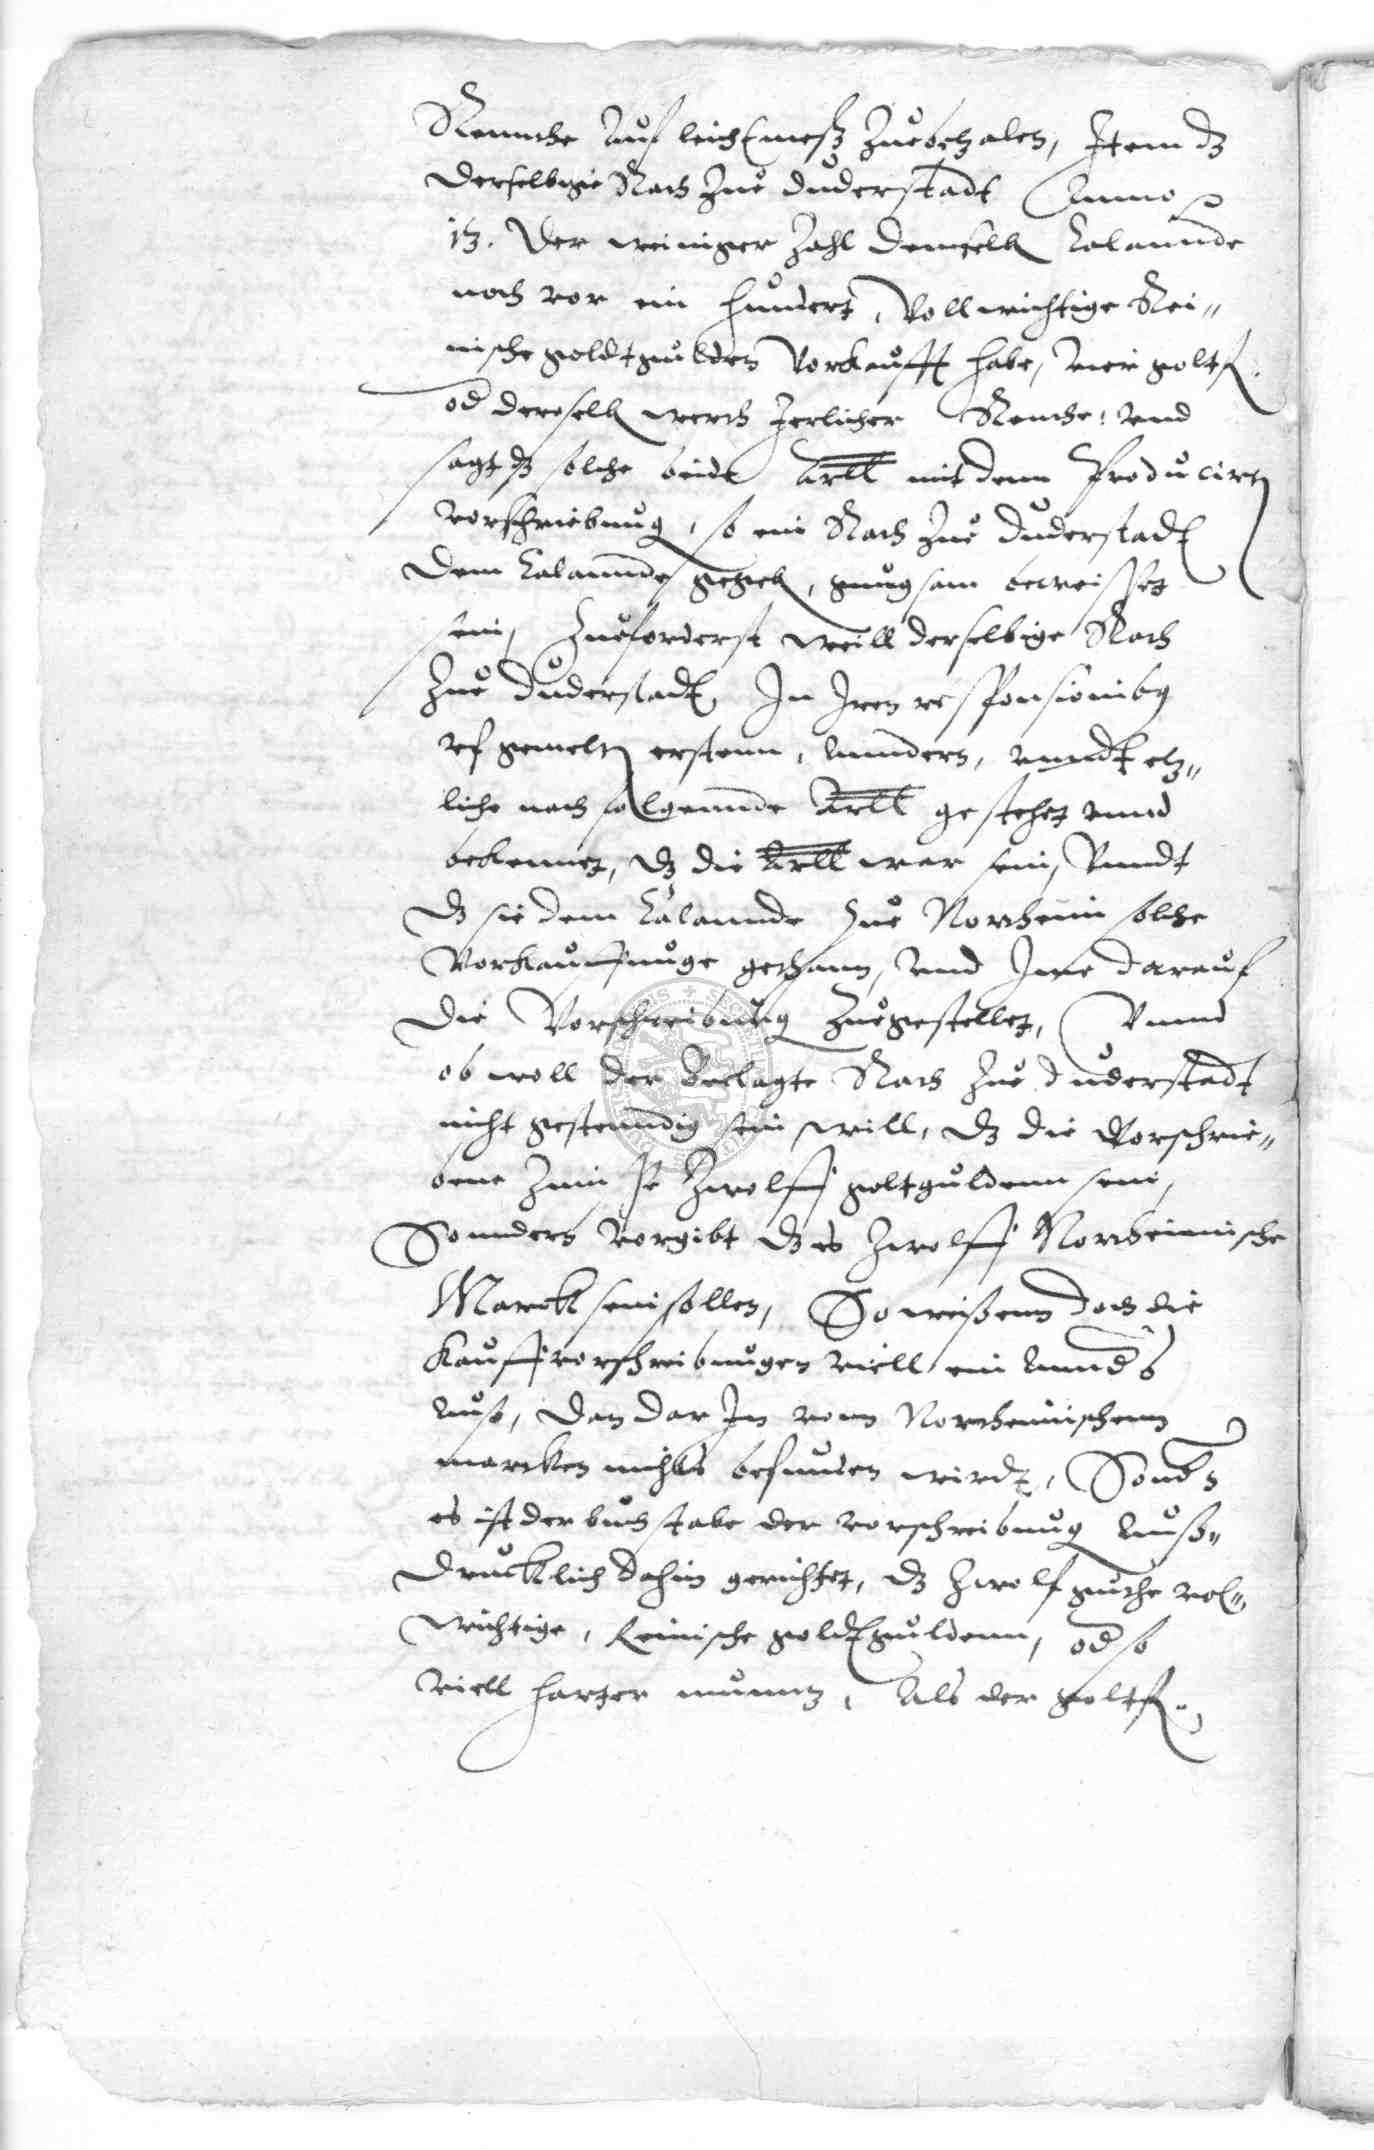 Rennthe Auf leichtmeß Zuebetzalen, Item dz
derselbigie Rath Zue Duderstadt Anno
13. Der weiniger Zahl demselben Calannde
noch vor ein hundert, Vollwichtige Rei¬
nische goldtgulden Vorkaufft habe, vier goltfl.
od derselben werth Jerlicher Renthe: vnd
sagt dz solche beide Artll mit denn Producirten
vorschriebung, so ein Rath Zue Duderstadt
dem Calannde gegeben, gnugsam beweisset
sein, Zueforderst weill derselbige Rath
Zue Duderstadt, In Iren responsionibus
vf gemelten erstenn, Anndern, vnndt etz¬
liche nachfolgennde Artll gestehet vnnd
bekennet, dz die Artll war sein, Vnndt
dz sie dem Calannde Zue Northeim solche
Vorkauffunge gethann, vnd Ime darauf
die Vorschreibung Zuegestellet, Vnnd
ob woll der Beclagte Rath Zue Duderstadt
nicht gestendig sein will, dz die Vorschrie¬
bene Zinse Zwolff goltguldenn sein,
Sonnders vorgibt dz es Zwolff Northeimische
Marck sein sollen, So weißenn doch die
Kauffvorschreibungen viell ein Annders
Auß, dan dar In vonn Northeimischenn
marcken nichts befunden wirdt, Sondern
es ist der buchstabe der vorschreibung Auß¬
drucklich dahin gerichtet, dz Zwolf guthe vol¬
wichtige, Reinische goldtguldenn, od so
viell harter muntz, Als der goltfl.